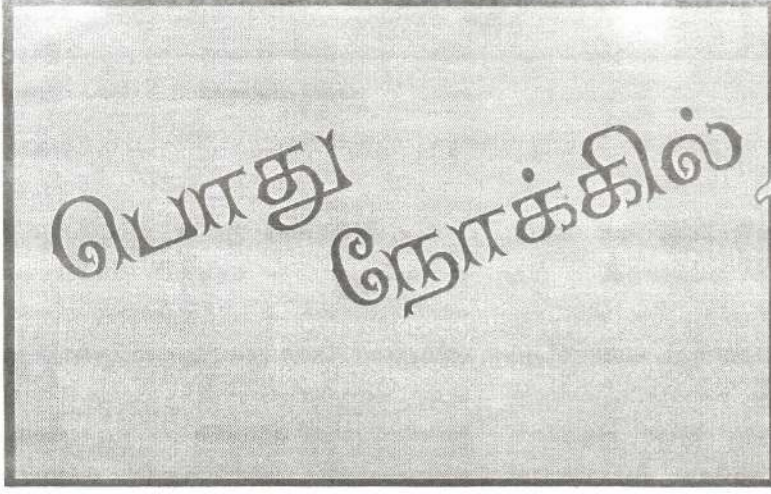 பொது
நோக்கில்